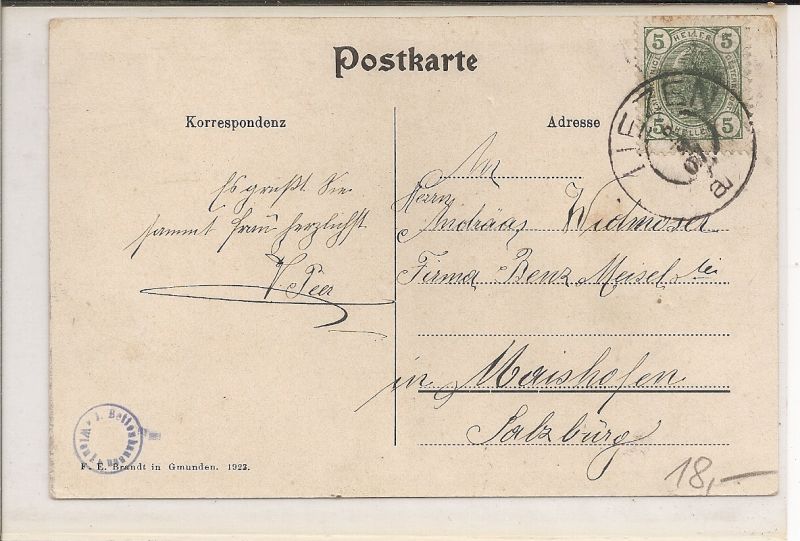 Postkarte
Korrespondenz
Adresse
5 HELLER 5
5 HELLER 5
LIEZEN
07
a
Es grüßt Sie
sammt Frau herzlichst
V. Peer
An
Herrn
Andräas Widmoser
Firma Benz Meisel
in Maishofen
Salzburg
F. E. Brandt in Gmunden. 1923.
18,—